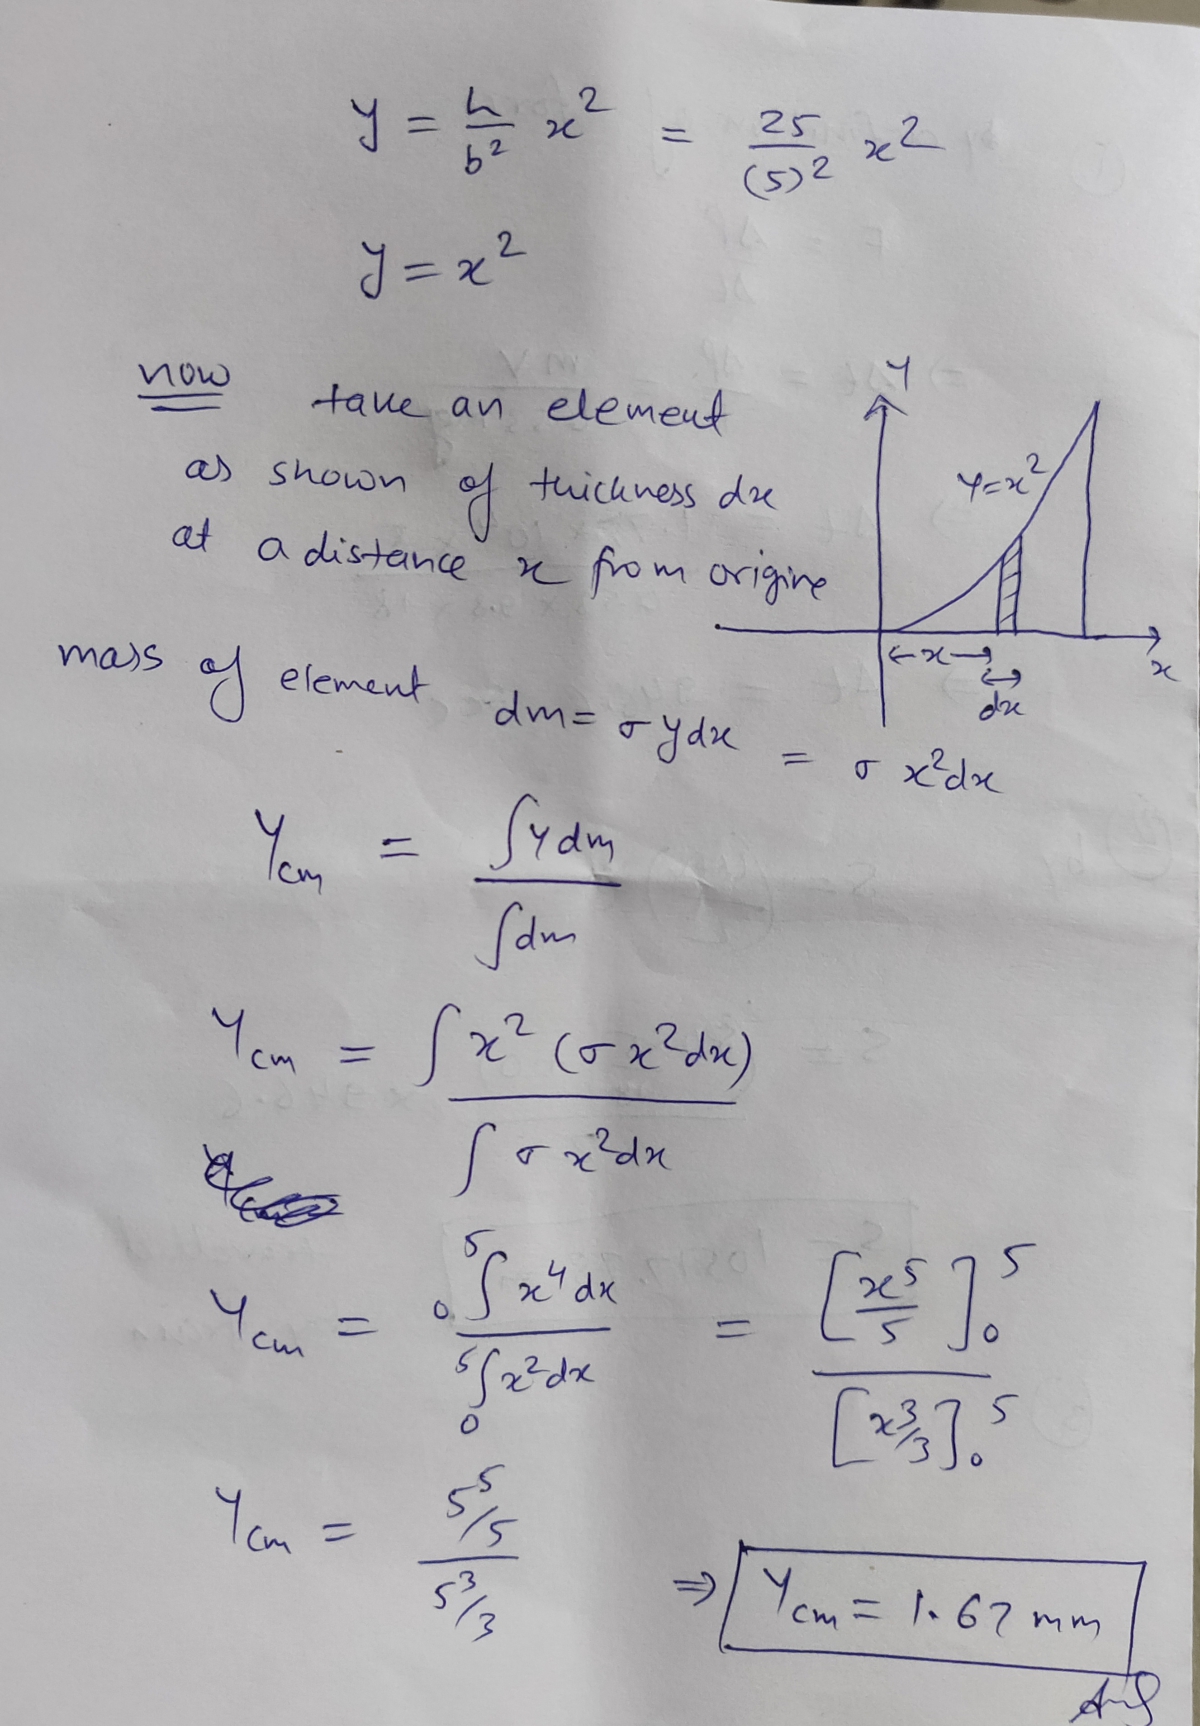 y = h/b² x² = 25/(5)² x²
y = x²
now take an element
as shown of thickness dx
at a distance x from origine
Y
Y=x²
←x→
dx
x
mass of element dm = σ y dx = σ x² dx
Ycm = ∫Y dm / ∫dm
Ycm = ∫ x² (σ x² dx) / ∫ σ x² dx
Ycm = ₀∫⁵ x⁴ dx / ₀∫⁵ x² dx = [x⁵/5]₀⁵ / [x³/3]₀⁵
Ycm = 5⁵/5 / 5³/3 ⇒ Ycm = 1.67 mm
Ans